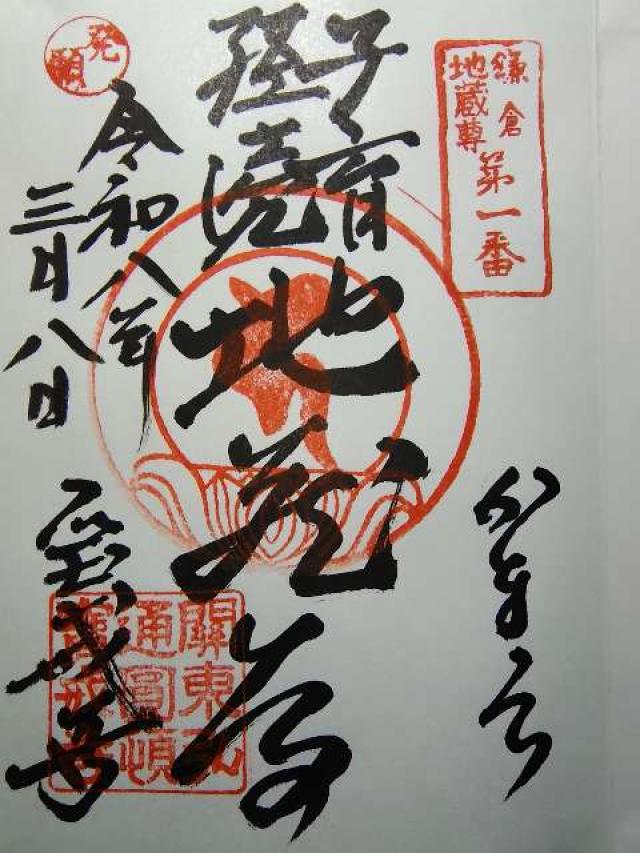 鎌倉
地蔵尊
第一番
かまくら
子育
経読
地蔵尊
発願
令和八年
三月八日
寳戒寺
關東弘
通圓頓
寶戒寺